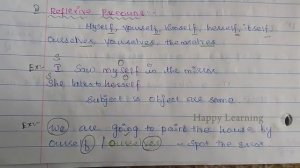 D Reflexive Pronouns
Myself, yourself, himself, herself, itself
Ourselves, yourselves, themselves
S O
Ex:- I saw myself in the mirror
S O
She talks to herself
Subject & object are same
Happy Learning
Ex:- We are going to paint the house by
ourself / ourselves → Spot the error